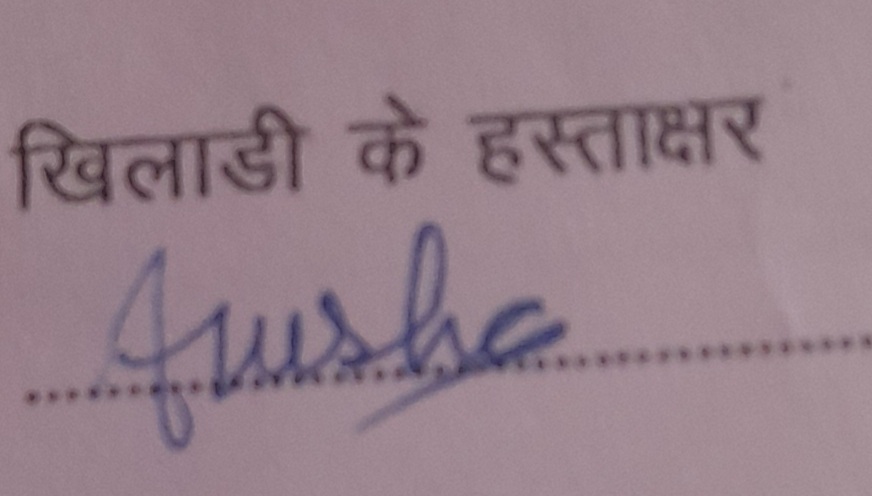 खिलाडी के हस्ताक्षर
Anusha